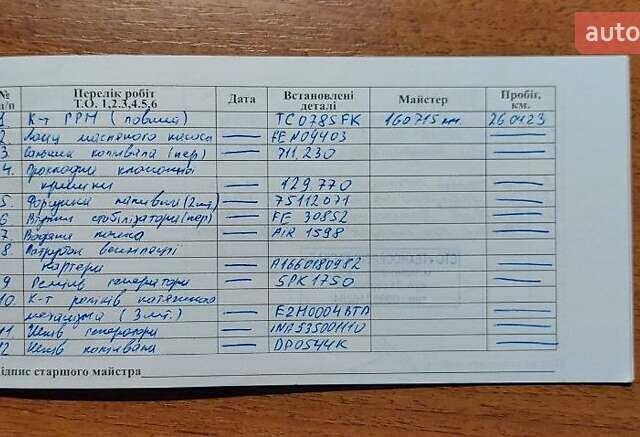 auto
№ п/п Перелік робіт Т.О. 1,2,3,4,5,6 Дата Встановлені деталі Майстер Пробіг, км.
1 К-т РРМ (повний) — TC0785FK 160715 км. 260123
2. Ланц масляного насоса — FEN04403 —
3. Сальник колінвала (пер) — 711.230 —
4. Прокладка клапанної
кришки — 129.770 —
5. Форсунка паливна (2шт) — 75112071 —
6 Втулки стабілізатора (пер) — FE 30852 —
7. Водяна помпа — AIR 1598 —
8. Патрубок вентиляції
картера — A1660180982 —
9 Ремінь генератора — 5PK1750 —
10. К-т роликів натяжного
механізма (3шт.) — E2H0004BTA —
11. Шків генератора — INA535001110 —
12 Шків колінвала — DP0544K —
ідпис старшого майстра